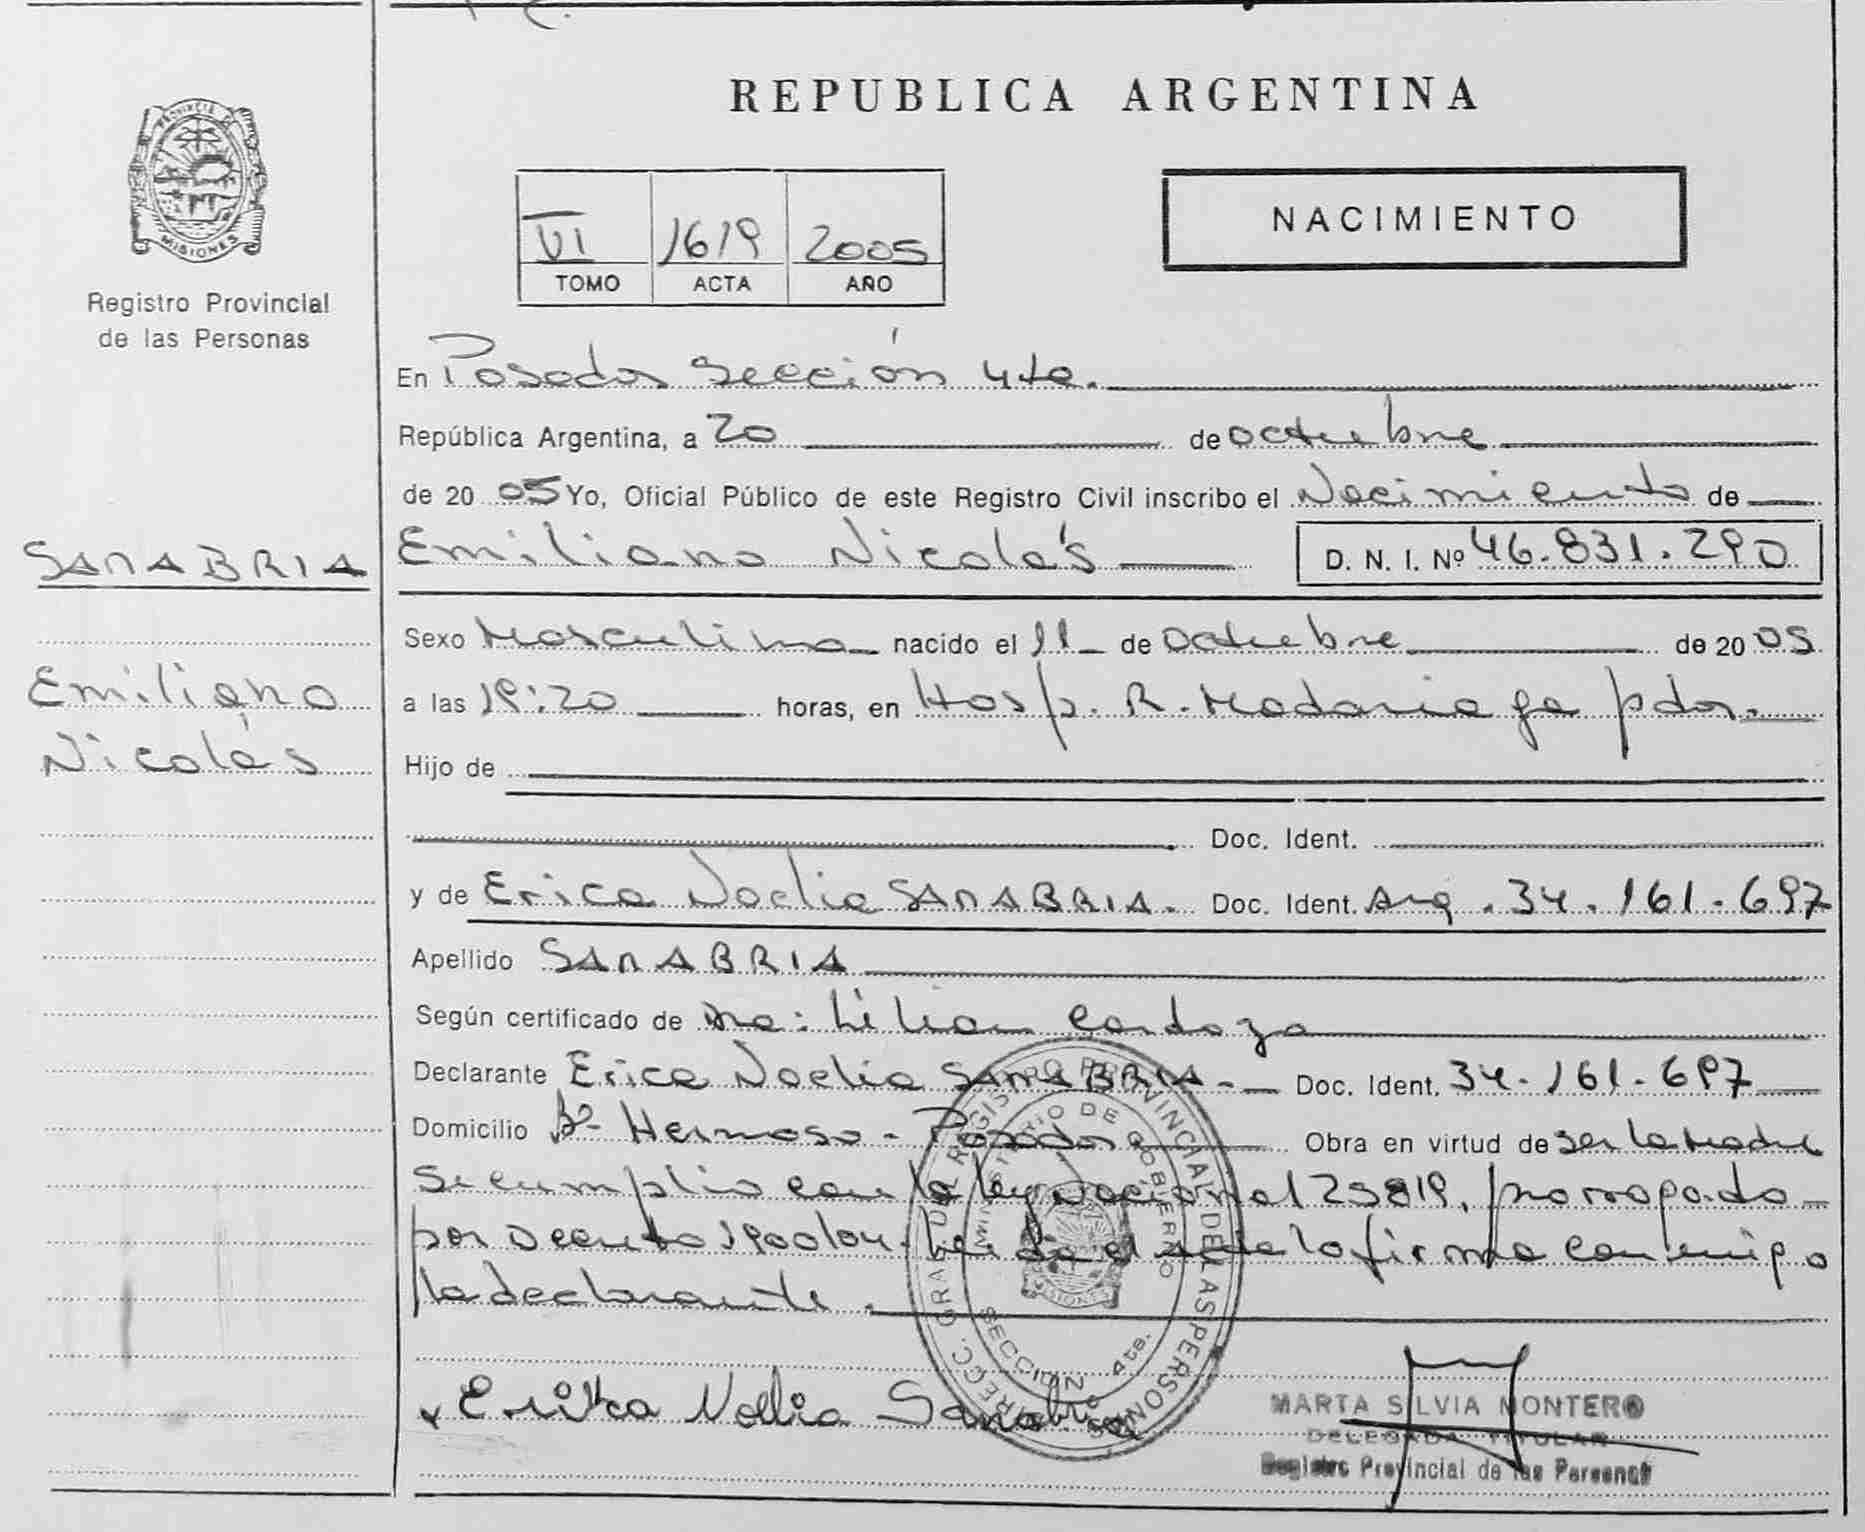 REPUBLICA ARGENTINA
PROVINCIA DE
MISIONES
Registro Provincial
de las Personas
NACIMIENTO
VI 1619 2005
TOMO ACTA AÑO
En Posadas Sección 4ta.
República Argentina, a 20 de octubre
de 20 05 Yo, Oficial Público de este Registro Civil inscribo el Nacimiento de
SANABRIA
Emiliano Nicolás D. N. I. Nº 46.831.290
Sexo Masculino nacido el 11 de octubre de 20 05
Emiliano
Nicolás
a las 19:20 horas, en Hosp. R. Madariaga pdas.
Hijo de
Doc. Ident.
y de Erica Noelia SANABRIA. Doc. Ident. Arg. 34.161.697
Apellido SANABRIA
Según certificado de Dra: Lilian Cardozo
Declarante Erica Noelia SANABRIA. Doc. Ident. 34.161.697
Domicilio Bº Hermoso - Posadas Obra en virtud de ser la madre
Se cumplio con la ley Nacional 25819, prorrogado
por Decreto 1900/04. Leida el acta lo firma conmigo
la declarante.
Erika Noelia Sanabria
DIRECC. GRAL. DEL REGISTRO PROVINCIAL DE LAS PERSONAS
MINISTERIO DE GOBIERNO
MISIONES
SECCION 4ta.
MARTA SILVIA MONTERO
DELEGADA TITULAR
Registro Provincial de las Personas